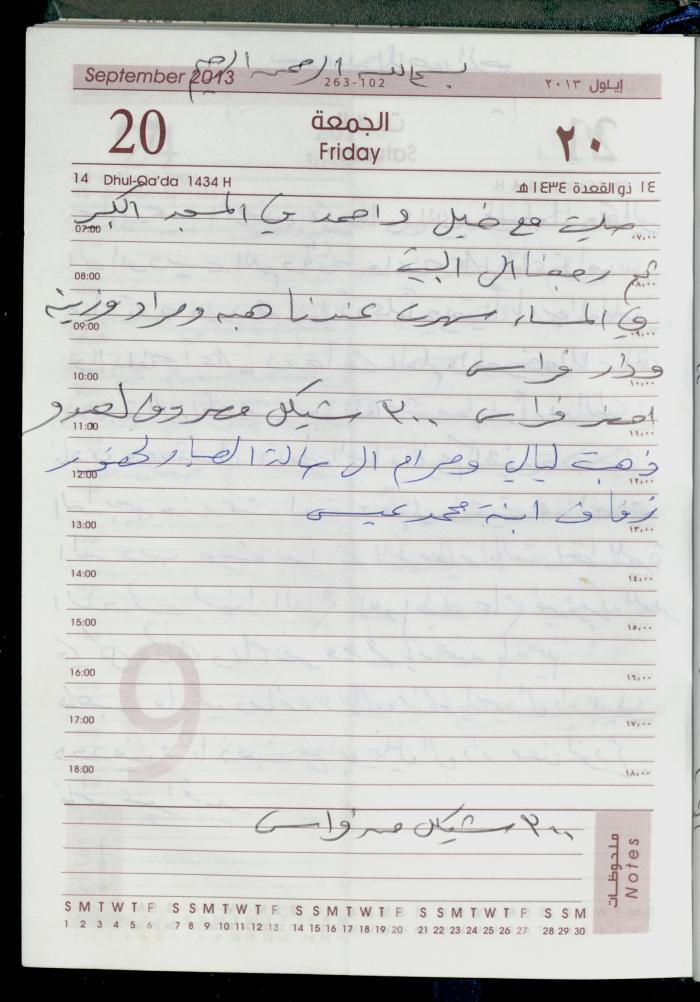 بسم الله الرحمن الرحيم
September 2013 263-102 إيلول ٢٠١٣
20 الجمعة ٢٠
Friday
14 Dhul-Qa'da 1434 H ١٤ ذو القعدة ١٤٣٤ هـ
صليت مع خليل واحمد في المسجد الكبير
07:00 ٠٧,٠٠
ثم رجعنا الى البيت
08:00 ٠٨,٠٠
في المساء سهرت عندنا هبه ومراد وزينة
09:00 ٠٩,٠٠
ودار فراس
10:00 ١٠,٠٠
فراس ٣٠٠ شيكل مصروف
11:00 ١١,٠٠
ذهبت ليالي ومرام الى صالة لحضور
12:00 ١٢,٠٠
زفاف ابنة محمد عيسى
13:00 ١٣,٠٠
14:00 ١٤,٠٠
15:00 ١٥,٠٠
16:00 ١٦,٠٠
17:00 ١٧,٠٠
18:00 ١٨,٠٠
9
٣٠٠ شيكل من فراس
ملحوظات
Notes
S M T W T F S S M T W T F S S M T W T F S S M T W T F S S M
1 2 3 4 5 6 7 8 9 10 11 12 13 14 15 16 17 18 19 20 21 22 23 24 25 26 27 28 29 30